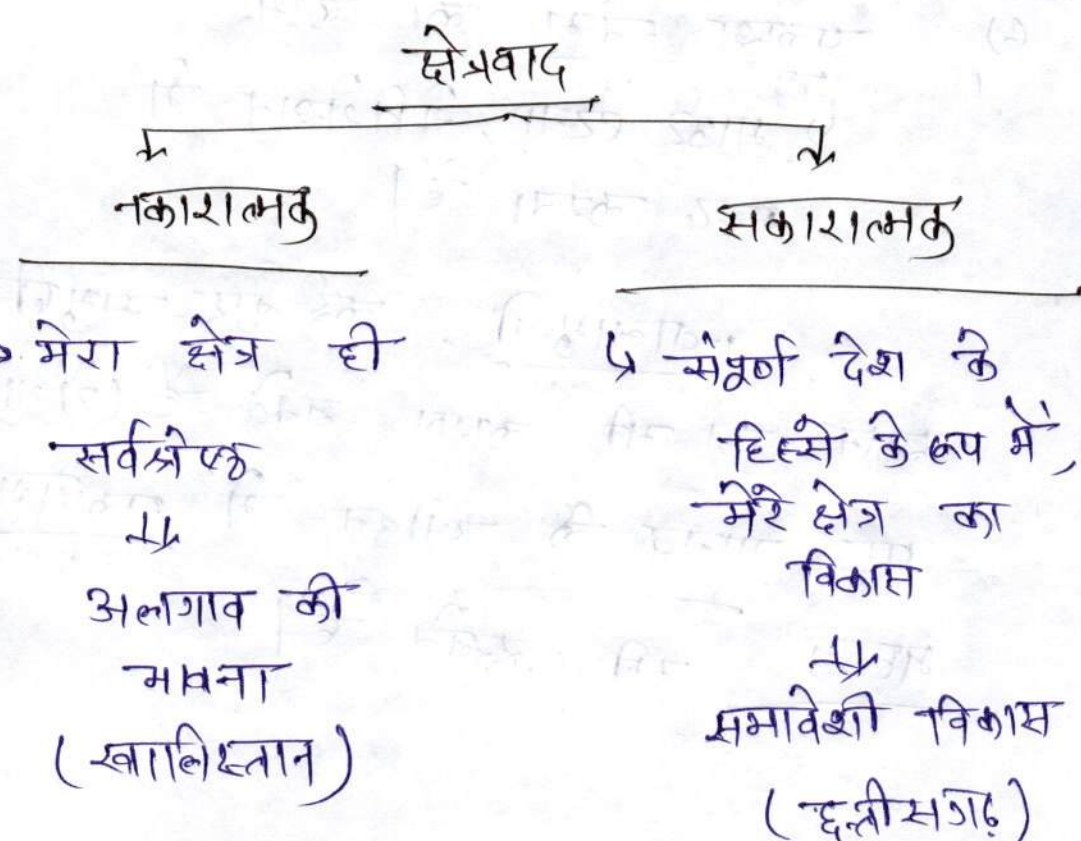 क्षेत्रवाद
नकारात्मक
सकारात्मक
मेरा क्षेत्र ही
सर्वश्रेष्ठ
अलगाव की
भावना
(खालिस्तान)
संपूर्ण देश के
हिस्से के रूप में,
मेरे क्षेत्र का
विकास
समावेशी विकास
(छत्तीसगढ़)